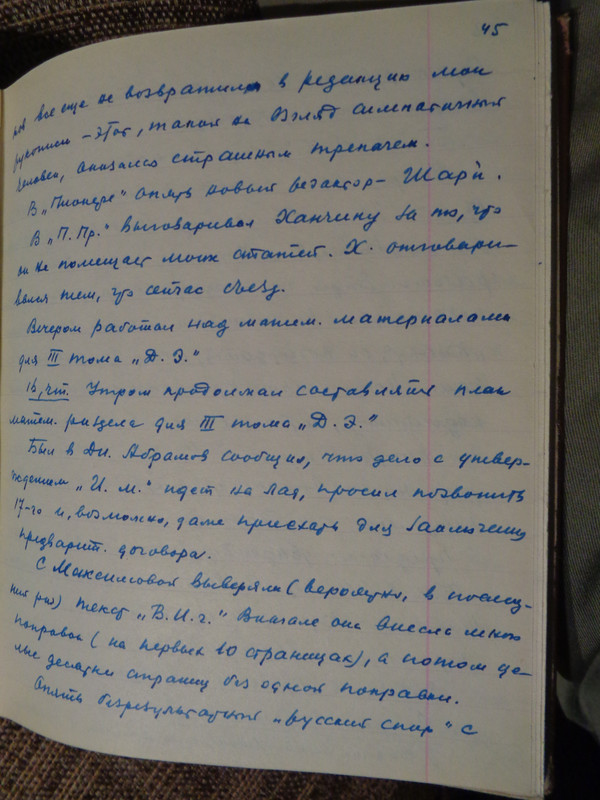 45
все еще не возвратил в редакцию мои
рукописи – этот, такой на взгляд симпатичный
человек, оказался страшным трепачем.
В „Пионере" опять новый редактор – Шари.
В „П. Пр." выговаривал Ханчину за то, что
он не помещает моих статей. Х. отговари-
вался тем, что сейчас съезд.
Вечером работал над матем. материалами
для III тома „Д. Э."
16, чт. Утром продолжал составлять план
матем. раздела для III тома „Д. Э."
Был в Дн. Абрамов сообщил, что дело с утвер-
ждением „И. М." идет на лад, просил позвонить
17-го и, возможно, даже приехать для заключения
предварит. договора.
С Максимовой выверяли (вероятно, в послед-
ний раз) текст „В. И. г." Вначале она внесла много
поправок (на первых 10 страницах), а потом це-
лые десятки страниц без одной поправки.
Опять безрезультатный „русский спор" с